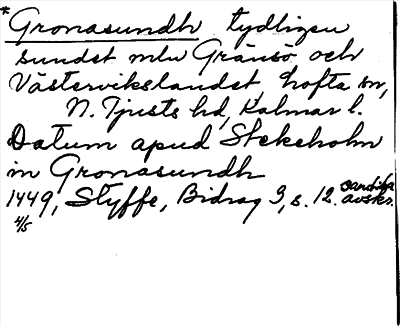 * Gronasundh tydligen
sundet mlw Gränsö och
Västervikslandet, Lofta sn,
N. Tjusts hd, Kalmar l.
Datum apud Stekeholm
in Gronasundh
1449, Styffe, Bidrag 3, s. 12. samtida avskr.
4/5